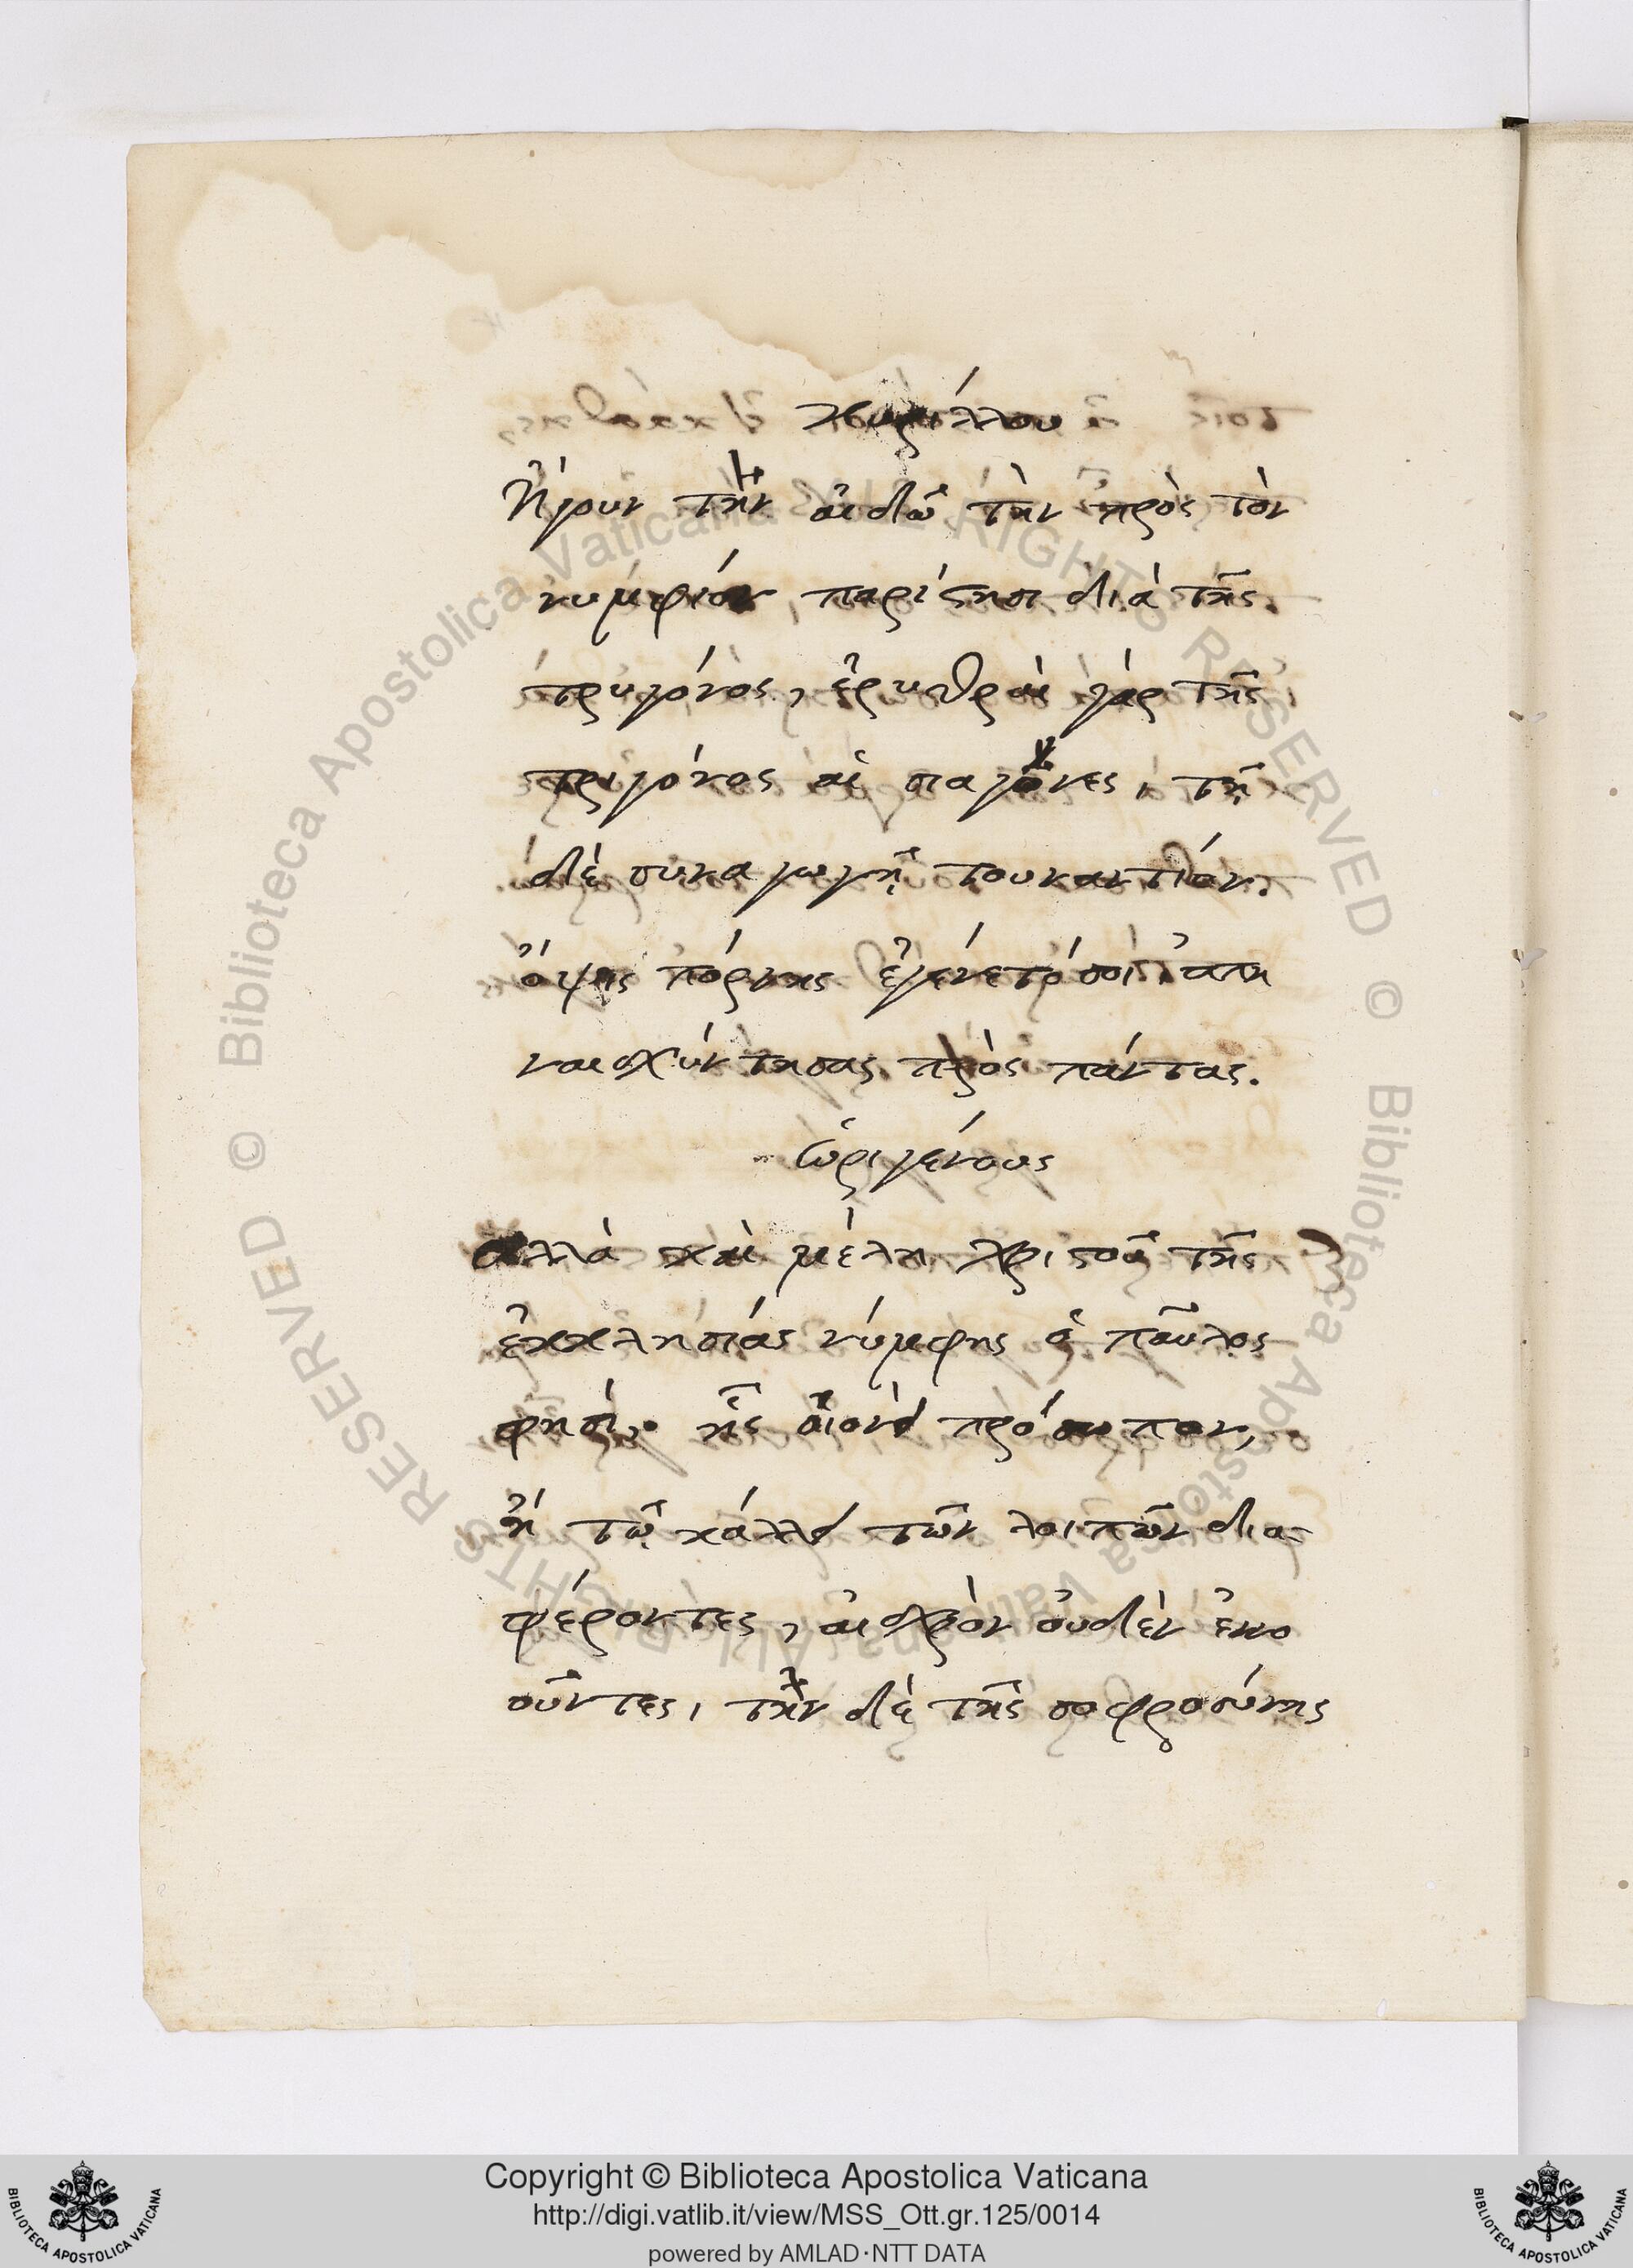 Κυρίλλου
Ἤγουν τὴν αἰδῶ τὴν πρὸς τὸν
νυμφίον, παρίστησι διὰ τῆς
τρυγόνος, ἐρυθραὶ γὰρ τῆς
τριγόνος αἱ σιαγόνες, τῇ
δὲ συναγωγῇ τουναντίον.
ὄψις πόρνης ἐγένετό σοι ἀπη
ναισχύντησας πρὸς πάντας.
Ὠριγένους
αλλὰ καὶ μέλη χριστοῦ τῆς
ἐκκλησίας νύμφης ὁ παῦλος
φησὶν. ἧς οἱονεὶ πρόσωπον,
ἢ τῷ κάλλει τῶν λοιπῶν δια-
φέροντες, αἰσχρὸν οὐδὲν ἐπο
οῦντες, τὴν δὲ τῆς σοφροσύνης
Copyright © Biblioteca Apostolica Vaticana
http://digi.vatlib.it/view/MSS_Ott.gr.125/0014
powered by AMLAD·NTT DATA
BIBLIOTECA APOSTOLICA VATICANA
BIBLIOTECA APOSTOLICA VATICANA
© Biblioteca Apostolica Vaticana ALL RIGHTS RESERVED © Biblioteca Apostolica Vaticana ALL RIGHTS RESERVED